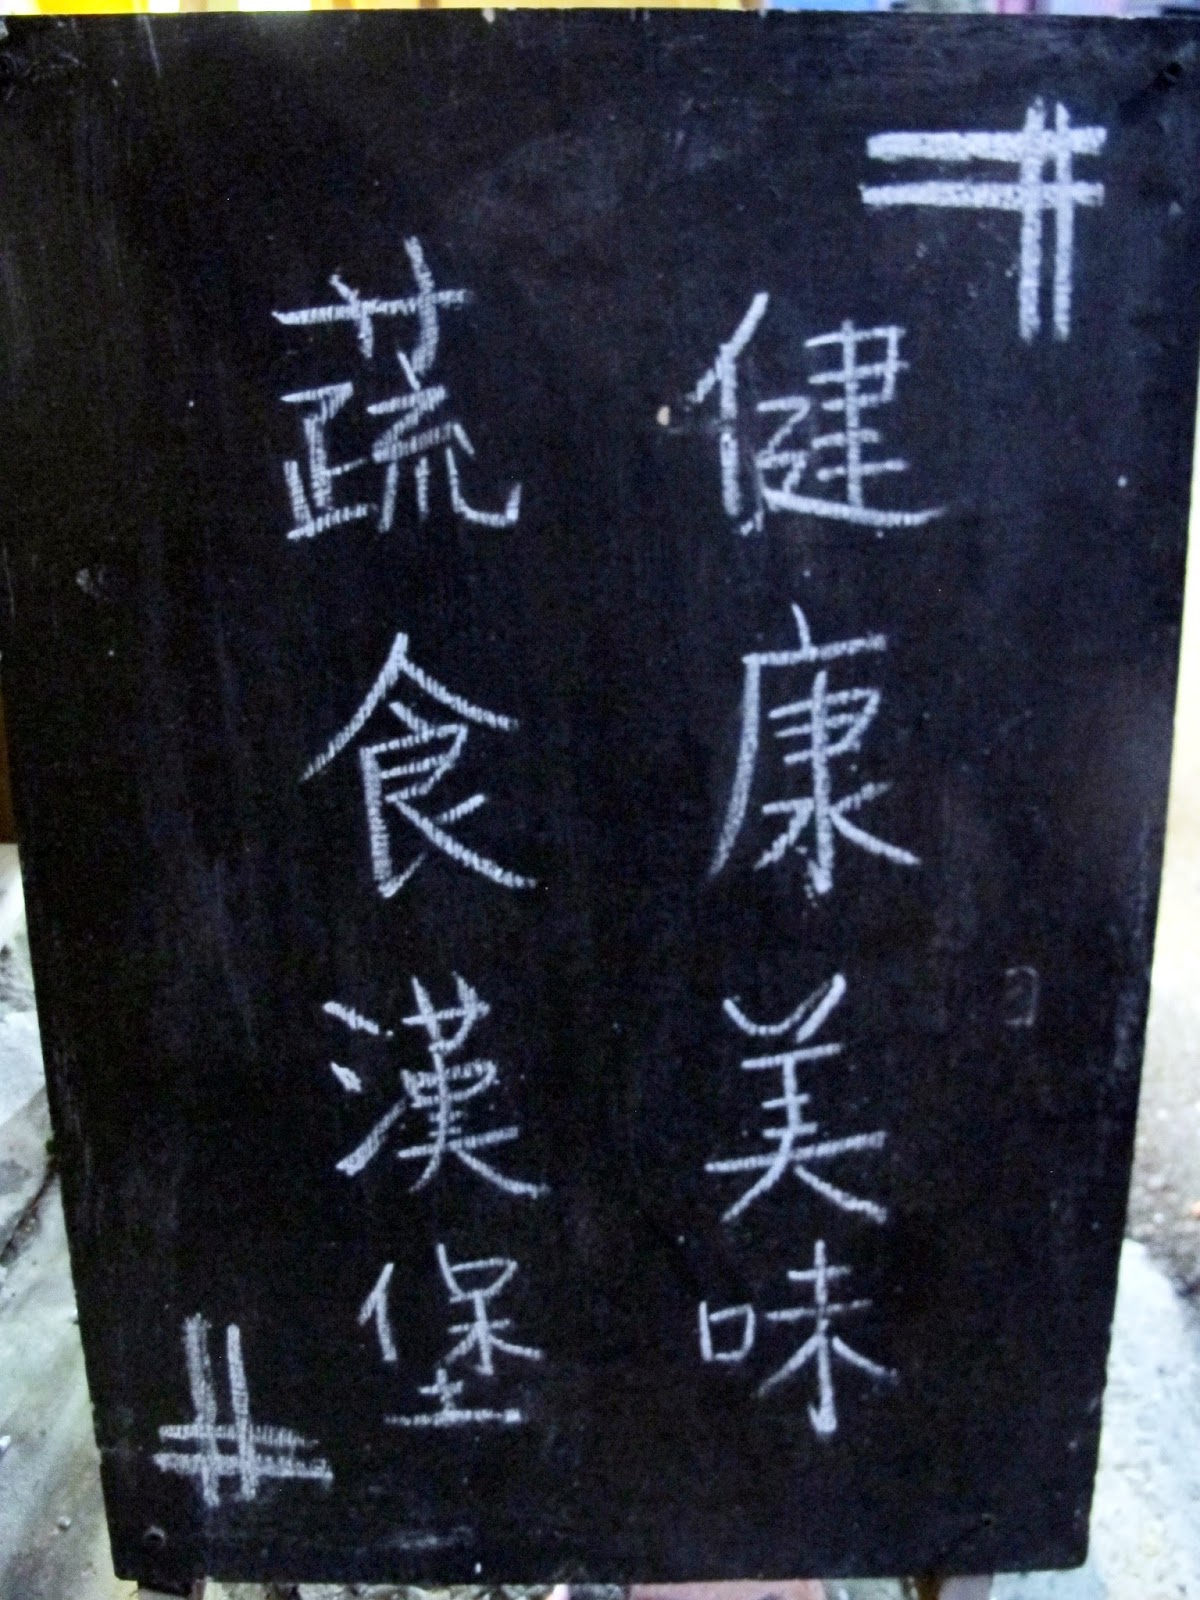 健康美味
蔬食漢堡